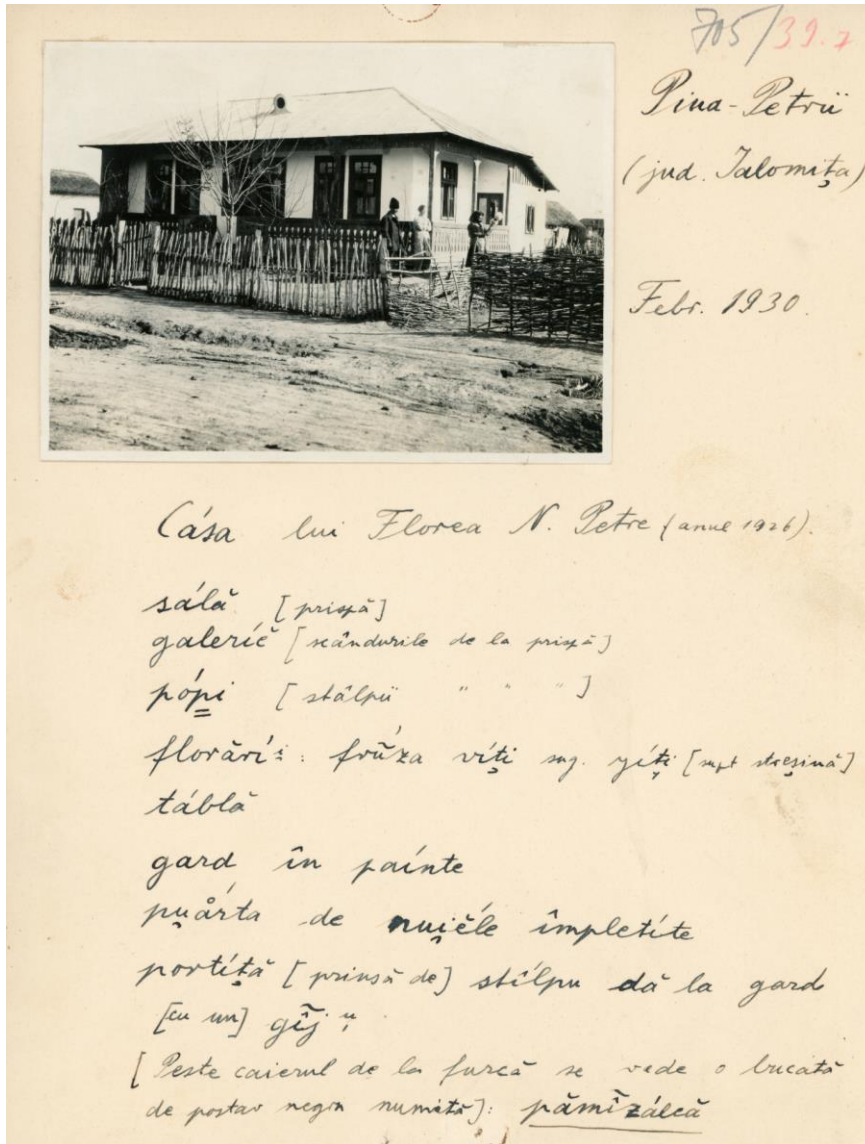 705/39.7
Piua-Petrii
(jud. Ialomița)
Febr. 1930.
Cása lui Florea N. Petre (anul 1926).
sálă [prispă]
galeríĕ [scândurile de la prispă]
pópi [stâlpii " " "]
florărí: frṹza víți sng. yíți [supt streșină]
táblă
gard în painte
pu̯ǻrta de nui̯éle împletíte
portíță [prinsă de] stîlpu dă la gard
[cu un] gîj
[Peste caierul de la furcă se vede o bucată
de postav negru numită]: pămîzálcă